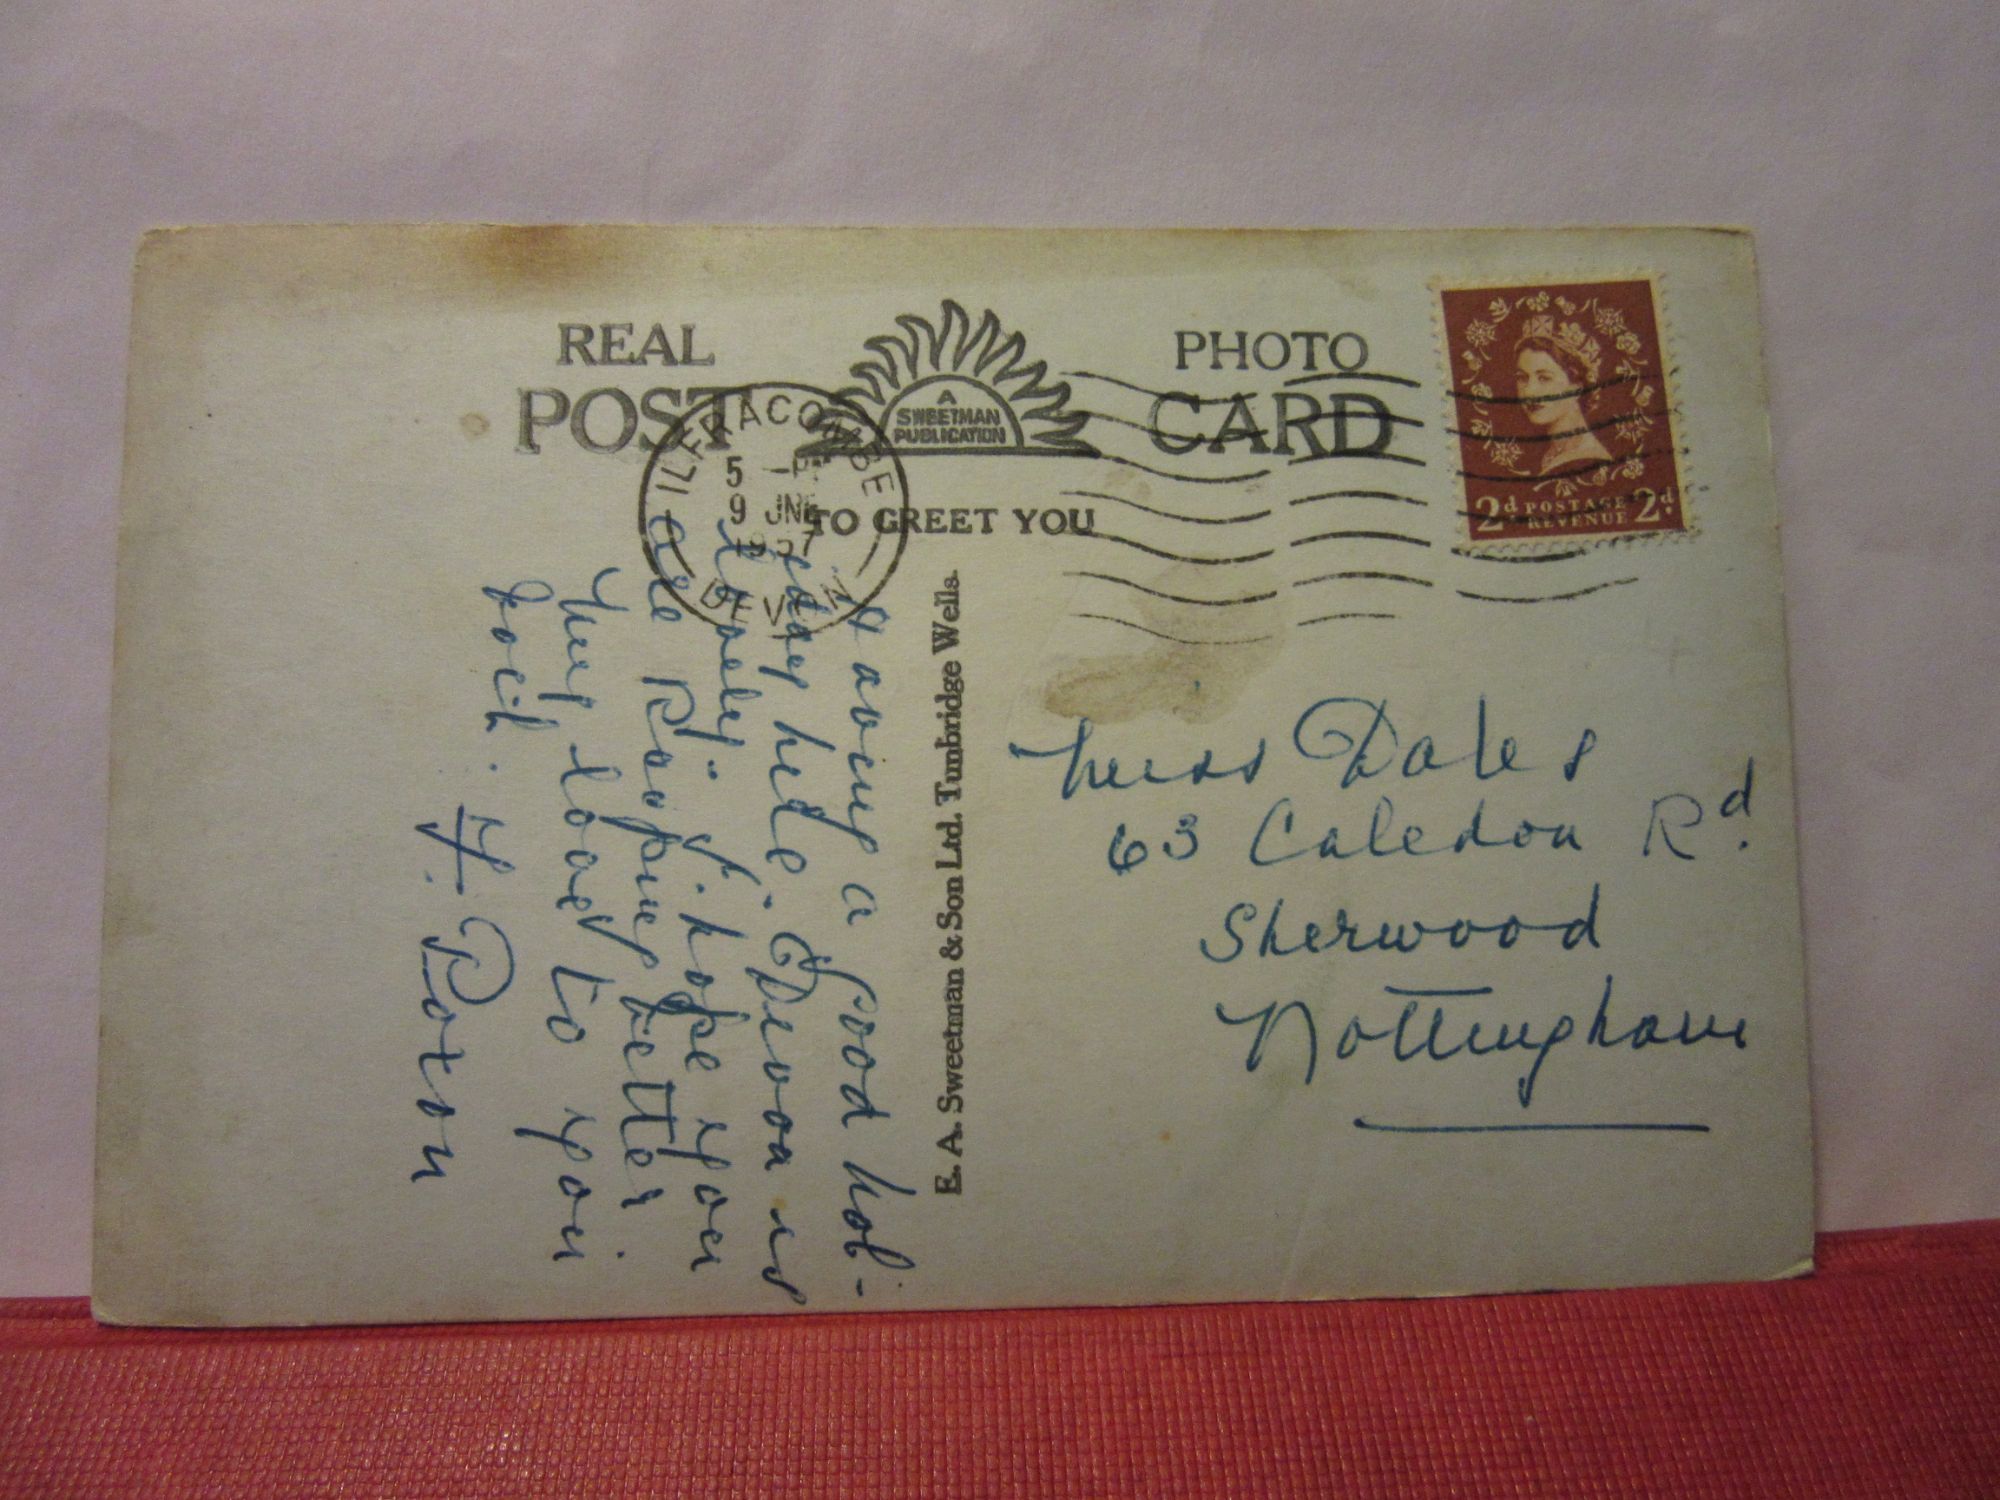 REAL PHOTO
POST CARD
A
SWEETMAN
PUBLICATION
TO GREET YOU
ILFRACOMBE
5
9 JNE
DEVON
2d POSTAGE 2d
REVENUE
E. A. Sweetman & Son Ltd. Tunbridge Wells.
Having a good hol-
iday here. Devon is
lovely. I. hope you
are Keeping better.
My love to you
both.
Miss Dales
63 Caledon Rd.
Sherwood
Nottingham